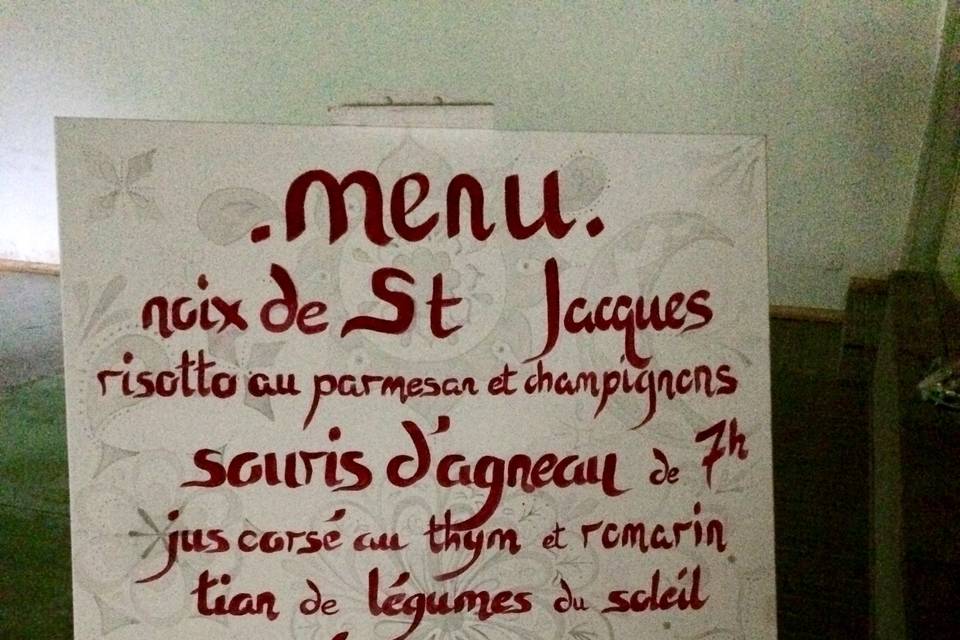 . menu.
noix de St Jacques
risotto au parmesan et champignons
souris d'agneau de 7h
jus corsé au thym et romarin
tian de légumes du soleil